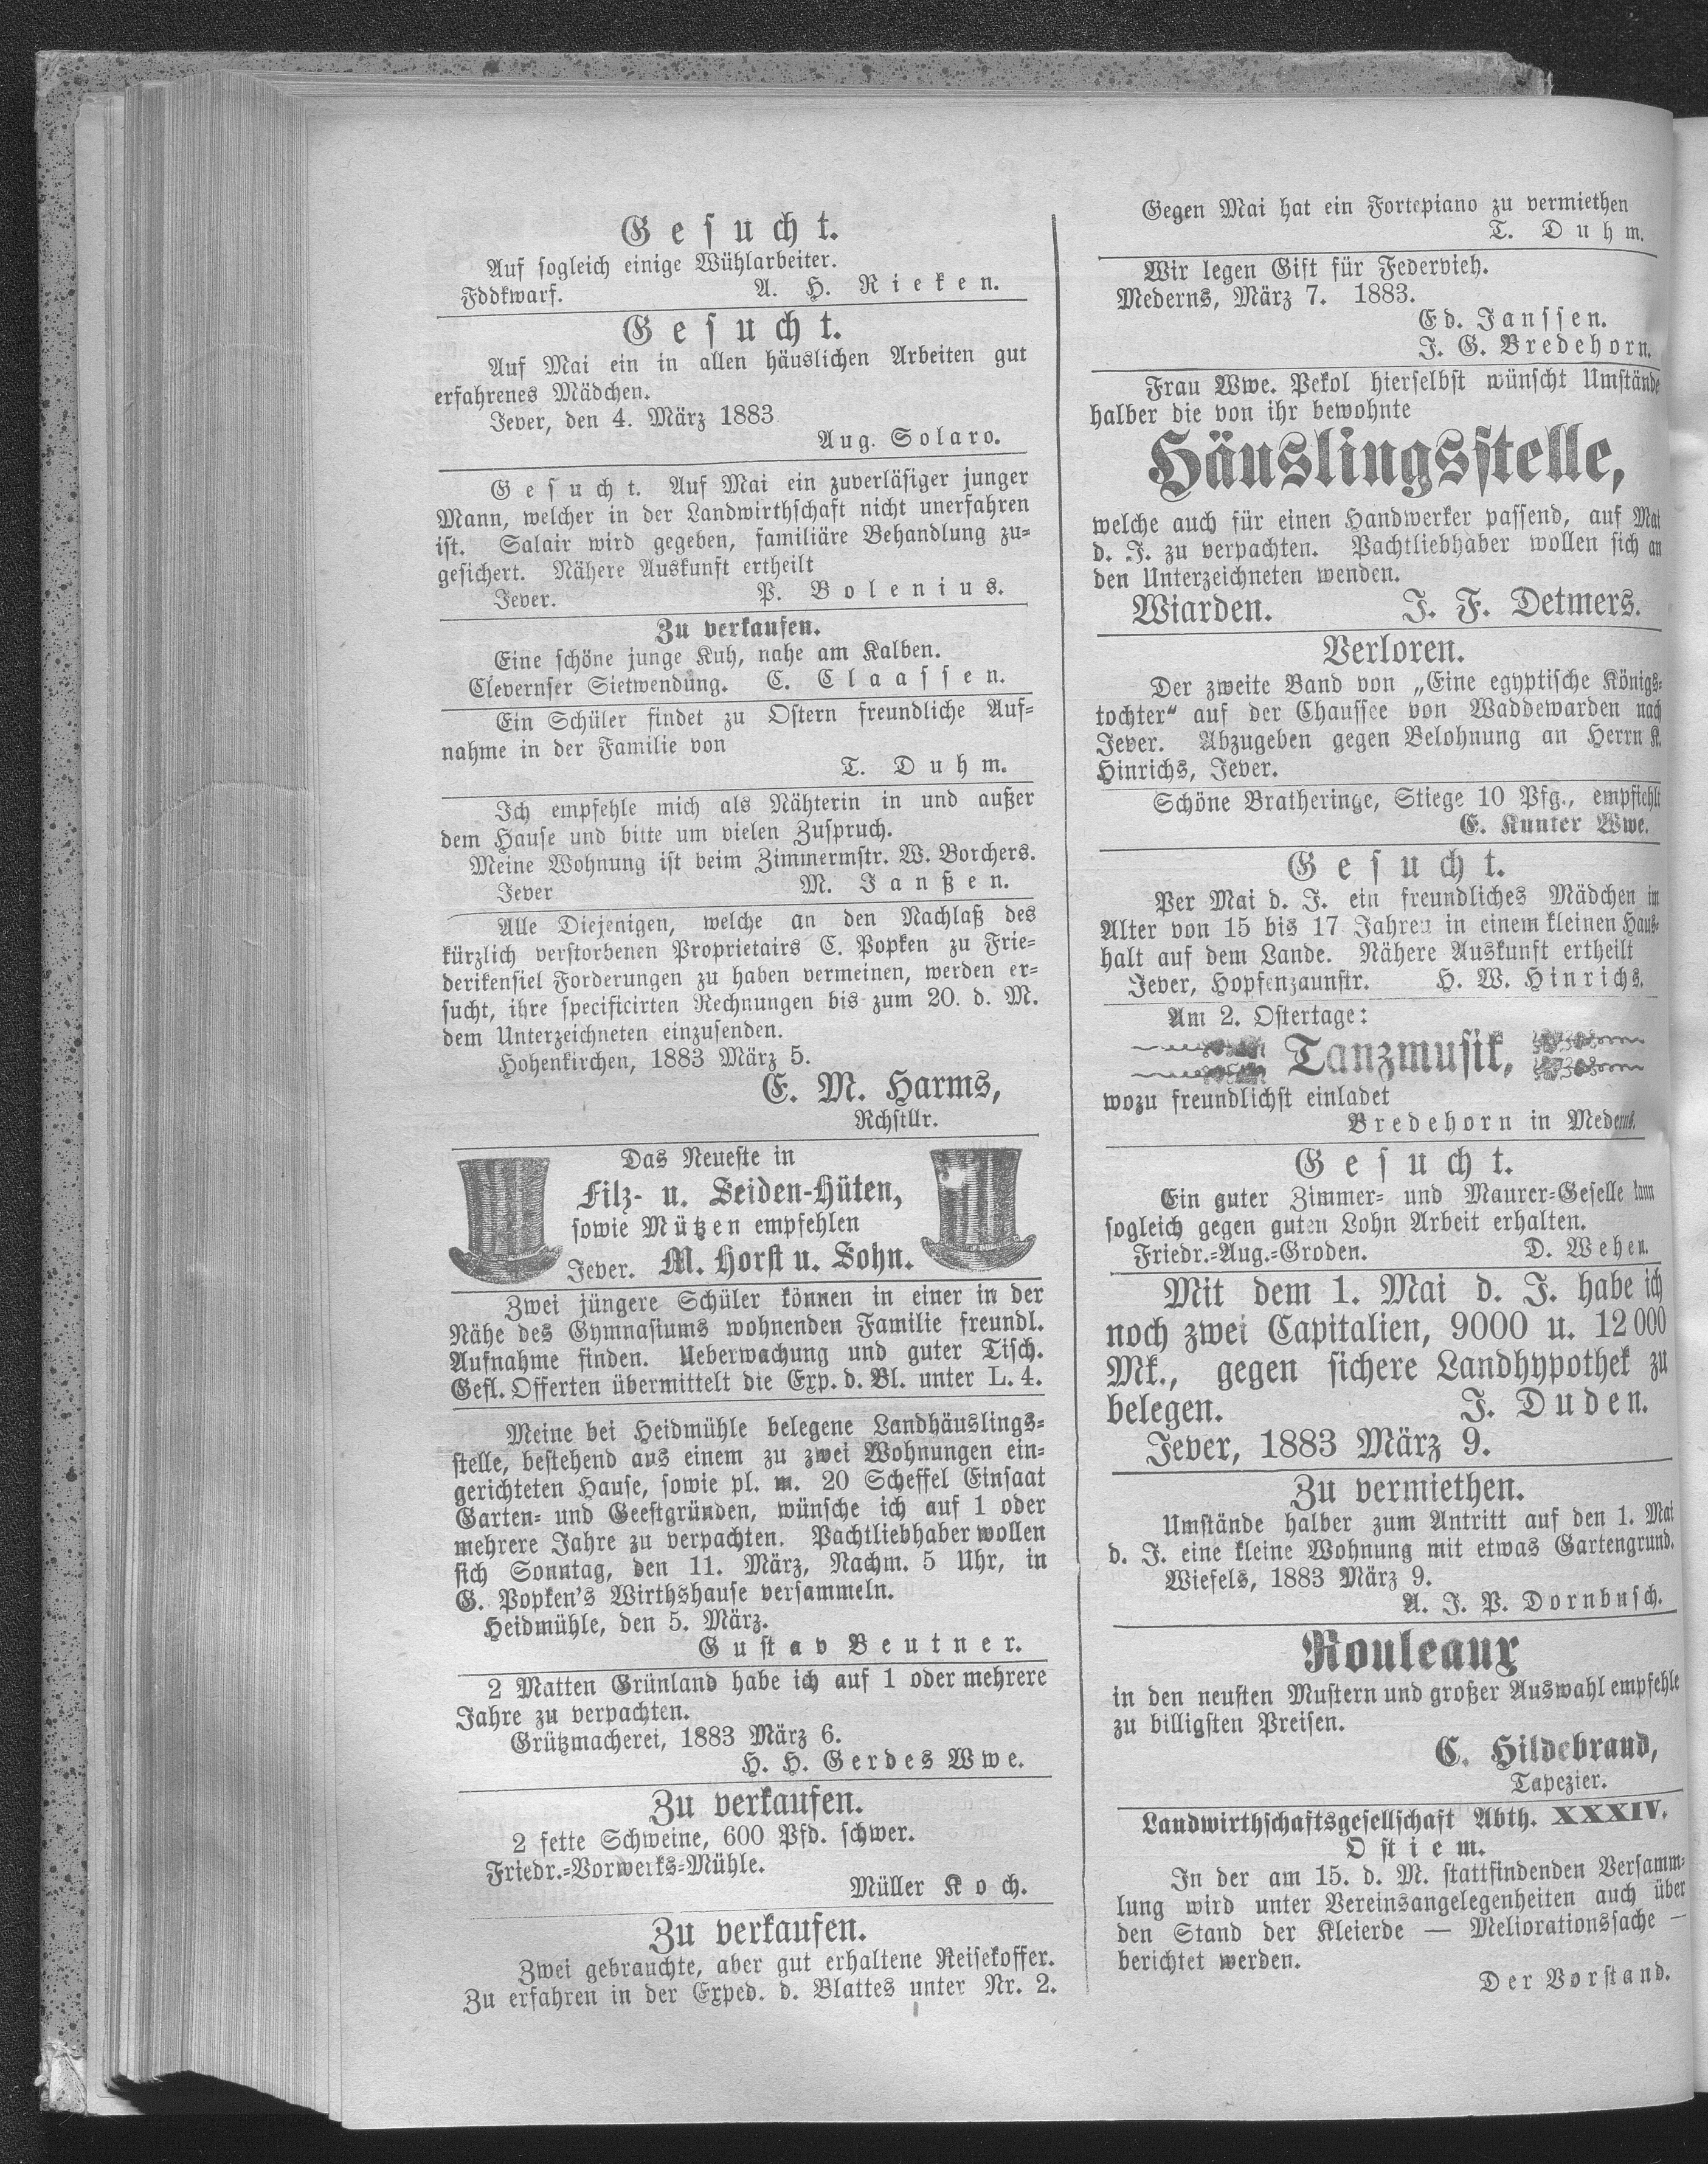 Gesucht.
Auf sogleich einige Wühlarbeiter.
Fddkwarf. A. H. Rieken.
Gesucht.
Auf Mai ein in allen häuslichen Arbeiten gut
erfahrenes Mädchen.
Jever, den 4. März 1883
Aug. Solaro.
Gesucht. Auf Mai ein zuverläsiger junger
Mann, welcher in der Landwirthschaft nicht unerfahren
ist. Salair wird gegeben, familiäre Behandlung zu-
gesichert. Nähere Auskunft ertheilt
Jever. P. Bolenius.
Zu verkaufen.
Eine schöne junge Kuh, nahe am Kalben.
Clevernser Sietwendung. C. Claassen.
Ein Schüler findet zu Ostern freundliche Auf-
nahme in der Familie von
T. Duhm.
Ich empfehle mich als Nähterin in und außer
dem Hause und bitte um vielen Zuspruch.
Meine Wohnung ist beim Zimmermstr. W. Borchers.
Jever M. Janßen.
Alle Diejenigen, welche an den Nachlaß des
kürzlich verstorbenen Proprietairs C. Popken zu Frie-
derikensiel Forderungen zu haben vermeinen, werden er-
sucht, ihre specificirten Rechnungen bis zum 20. d. M.
dem Unterzeichneten einzusenden.
Hohenkirchen, 1883 März 5.
E. M. Harms,
Rchstllr.
Das Neueste in
Filz- u. Seiden-Hüten,
sowie Mützen empfehlen
Jever. M. Horst u. Sohn.
Zwei jüngere Schüler können in einer in der
Nähe des Gymnasiums wohnenden Familie freundl.
Aufnahme finden. Ueberwachung und guter Tisch.
Gefl. Offerten übermittelt die Exp. d. Bl. unter L. 4.
Meine bei Heidmühle belegene Landhäuslings-
stelle, bestehend aus einem zu zwei Wohnungen ein-
gerichteten Hause, sowie pl. m. 20 Scheffel Einsaat
Garten- und Geestgründen, wünsche ich auf 1 oder
mehrere Jahre zu verpachten. Pachtliebhaber wollen
sich Sonntag, den 11. März, Nachm. 5 Uhr, in
G. Popken's Wirthshause versammeln.
Heidmühle, den 5. März.
Gustav Beutner.
2 Matten Grünland habe ich auf 1 oder mehrere
Jahre zu verpachten.
Grützmacherei, 1883 März 6.
H. H. Gerdes Wwe.
Zu verkaufen.
2 fette Schweine, 600 Pfd. schwer.
Friedr.-Vorwerks-Mühle.
Müller Koch.
Zu verkaufen.
Zwei gebrauchte, aber gut erhaltene Reisekoffer.
Zu erfahren in der Exped. d. Blattes unter Nr. 2.
Gegen Mai hat ein Fortepiano zu vermiethen
T. Duhm.
Wir legen Gift für Federvieh.
Mederns, März 7. 1883.
Ed. Janssen.
J. G. Bredehorn.
Frau Wwe. Pekol hierselbst wünscht Umstände
halber die von ihr bewohnte
Häuslingsstelle,
welche auch für einen Handwerker passend, auf Mai
d. J. zu verpachten. Pachtliebhaber wollen sich an
den Unterzeichneten wenden.
Wiarden. J. F. Detmers.
Verloren.
Der zweite Band von „Eine egyptische Königs-
tochter“ auf der Chaussee von Waddewarden nach
Jever. Abzugeben gegen Belohnung an Herrn K.
Hinrichs, Jever.
Schöne Bratheringe, Stiege 10 Pfg., empfiehlt
E. Kunter Wwe.
Gesucht.
Per Mai d. J. ein freundliches Mädchen im
Alter von 15 bis 17 Jahren in einem kleinen Haus-
halt auf dem Lande. Nähere Auskunft ertheilt
Jever, Hopfenzaunstr. H. W. Hinrichs.
Am 2. Ostertage:
Tanzmusik,
wozu freundlichst einladet
Bredehorn in Mederns.
Gesucht.
Ein guter Zimmer- und Maurer-Geselle kann
sogleich gegen guten Lohn Arbeit erhalten.
Friedr.-Aug.-Groden. D. Wehen.
Mit dem 1. Mai d. J. habe ich
noch zwei Capitalien, 9000 u. 12 000
Mk., gegen sichere Landhypothek zu
belegen. J. Duden.
Jever, 1883 März 9.
Zu vermiethen.
Umstände halber zum Antritt auf den 1. Mai
d. J. eine kleine Wohnung mit etwas Gartengrund.
Wiefels, 1883 März 9.
A. J. P. Dornbusch.
Rouleaux
in den neusten Mustern und großer Auswahl empfehle
zu billigsten Preisen.
C. Hildebrand,
Tapezier.
Landwirthschaftsgesellschaft Abth. XXXIV.
Ostiem.
In der am 15. d. M. stattfindenden Versamm-
lung wird unter Vereinsangelegenheiten auch über
den Stand der Kleierde — Meliorationssache —
berichtet werden.
Der Vorstand.